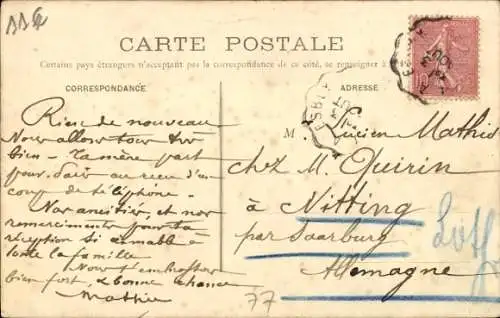 CARTE POSTALE
Certains pays étrangers n'acceptent pas la correspondance de ce côté, se renseigner à
CORRESPONDANCE
ADRESSE
Rien de nouveau
Nous allons tous très
bien - Ta mère part
pour
coup de téléphone.
Nos amitiés, et nos
remerciements pour ta
réception si aimable à
toute la famille
Nous t'embrassons
bien fort, & bonne chance
Mathis
M. Lucien Mathis
chez M. Quirin
à Nitting
par Saarburg
Allemagne
77
10